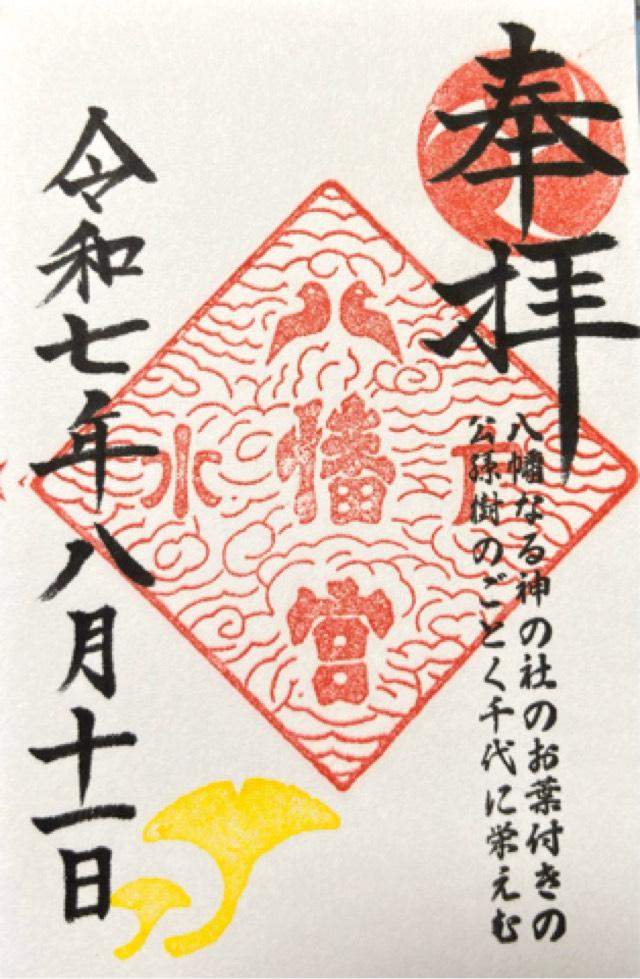 奉拝
八幡なる神の社のお葉付きの
公孫樹のごとく千代に栄えむ
水戸
八幡宮
令和七年八月十一日